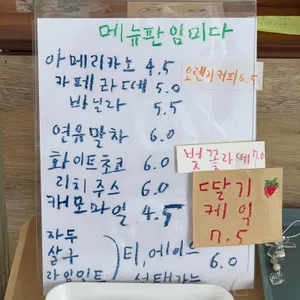 메뉴판 입미다
아메리카노 4.5
오렌지커피 6.5
카페라떼 5.0
바닐라 5.5
연유말차 6.0
벚꽃라떼 7.0
화이트초코 6.0
리치쥬스 6.0
캐모마일 4.5
딸기
케익
7.5
자두
살구
라임민트
티, 에이드 6.0
선택가능